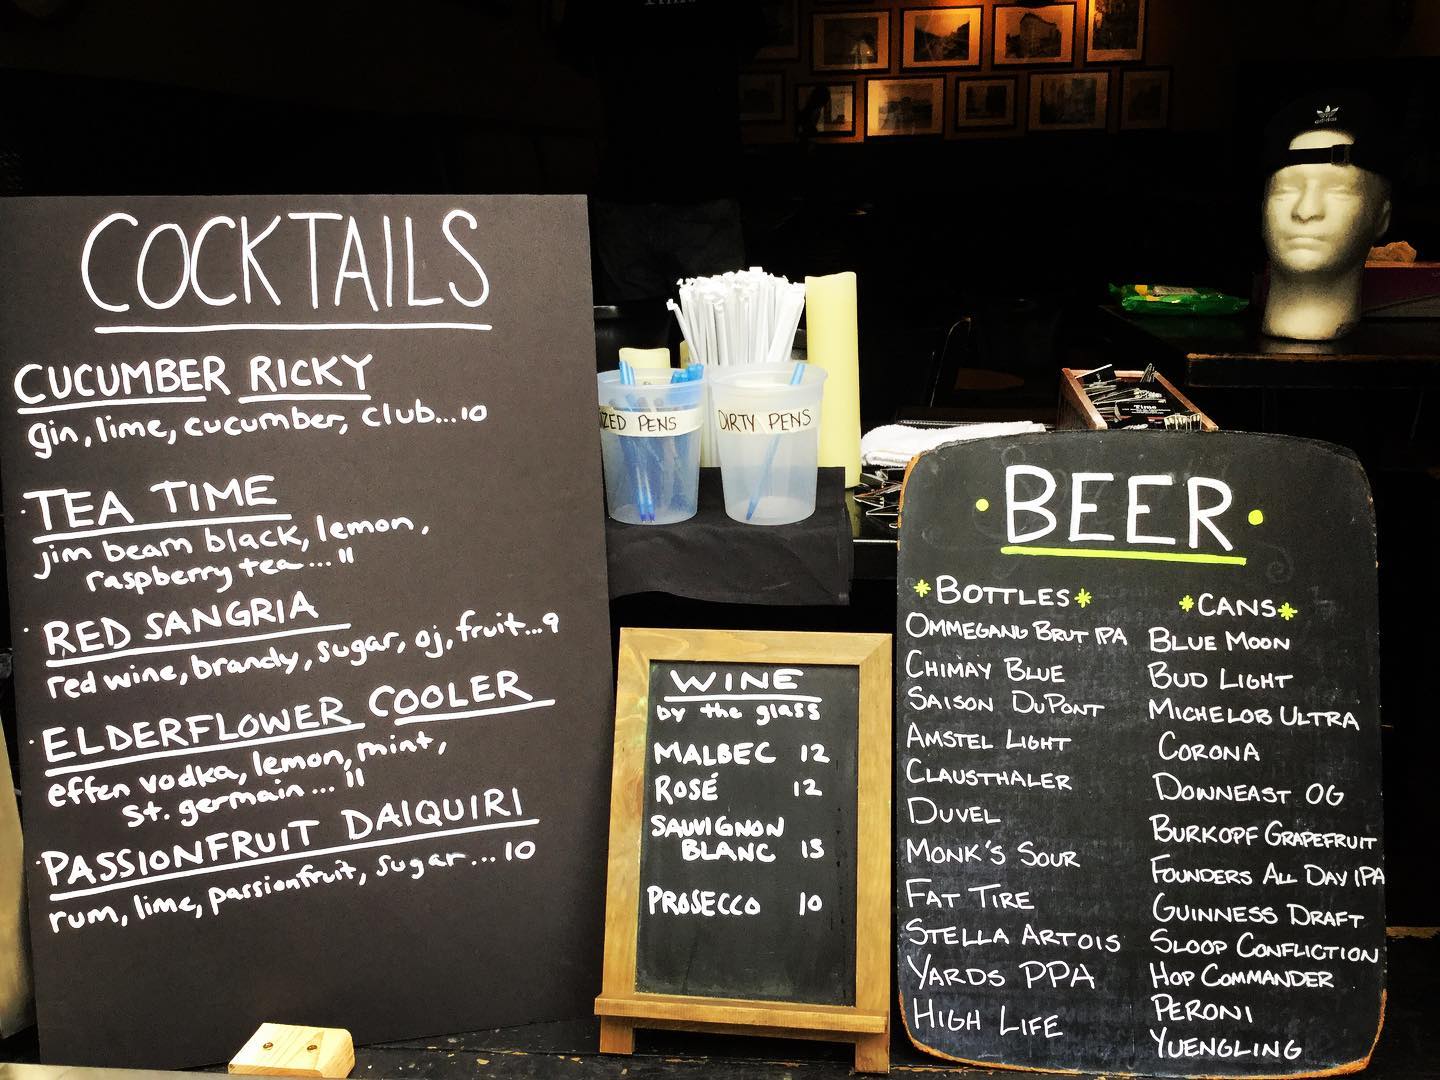 COCKTAILS
CUCUMBER RICKY
gin, lime, cucumber, club...10
· TEA TIME
jim beam black, lemon,
raspberry tea... 11
· RED SANGRIA
red wine, brandy, sugar, oj, fruit...9
· ELDERFLOWER COOLER
effen vodka, lemon, mint,
st. germain ... 11
· PASSIONFRUIT DAIQUIRI
rum, lime, passionfruit, sugar ... 10
IZED PENS
DIRTY PENS
WINE
by the glass
MALBEC 12
ROSÉ 12
SAUVIGNON
BLANC 13
PROSECCO 10
· BEER ·
*BOTTLES*
OMMEGANG BRUT IPA
CHIMAY BLUE
SAISON DUPONT
AMSTEL LIGHT
CLAUSTHALER
DUVEL
MONK'S SOUR
FAT TIRE
STELLA ARTOIS
YARDS PPA
HIGH LIFE
*CANS*
BLUE MOON
BUD LIGHT
MICHELOB ULTRA
CORONA
DOWNEAST OG
BURKOPF GRAPEFRUIT
FOUNDERS ALL DAY IPA
GUINNESS DRAFT
SLOOP CONFLICTION
HOP COMMANDER
PERONI
YUENGLING
adidas
Time